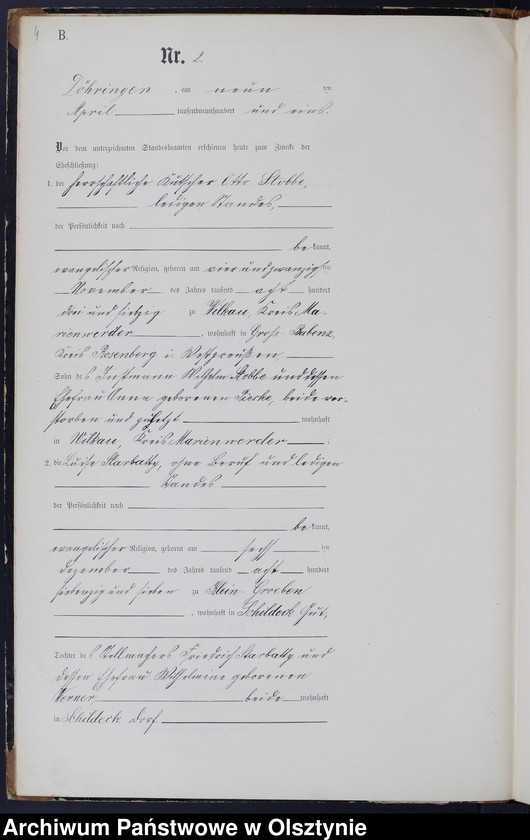 4
B.
Nr. 2
Döhringen, am neun ten
April tausendneunhundert und eins.
Vor dem unterzeichneten Standesbeamten erschienen heute zum Zwecke der
Eheschließung:
1. der herrschaftliche Kutscher Otto Stobbe,
ledigen Standes,
der Persönlichkeit nach
bekannt,
evangelischer Religion, geboren am vierundzwanzigsten
November des Jahres tausend acht hundert
drei und siebzig zu Wilkau, Kreis Ma-
rienwerder, wohnhaft in Groß Babenz,
Kreis Rosenberg i. Westpreußen,
Sohn des Instmann Wilhelm Stobbe und dessen
Ehefrau Anna geborenen beide ver-
storben und zuletzt wohnhaft
in Wilkau, Kreis Marienwerder;
2. die Luise Starbatty, ohne Beruf und ledigen
Standes
der Persönlichkeit nach
bekannt,
evangelischer Religion, geboren am sechs ten
Dezember des Jahres tausend acht hundert
siebenzig und sieben zu Klein Groeben
, wohnhaft in Schildeck Gut,
Tochter des Stellmachers Friedrich Starbatty und
dessen Ehefrau Wilhelmine geborenen
Werner beide wohnhaft
in Schildeck Dorf
Archiwum Państwowe w Olsztynie